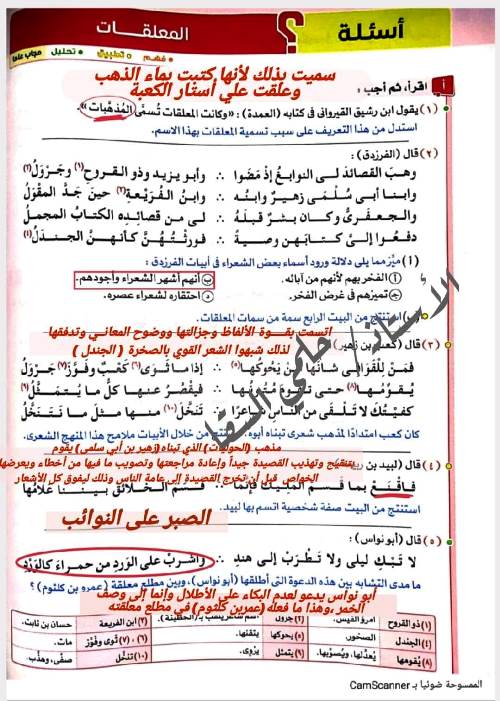 أسئلة
؟
المعلقات
• فهم • تطبيق • تحليل
مجاب عنها
سميت بذلك لأنها كتبت بماء الذهب
وعلقت علي أستار الكعبة
أ اقرأ، ثم أجب :
(١) يقول ابن رشيق القيرواني فى كتابه (العمدة) : «وكانت المعلقات تُسمَّى المُذهَّبات».
استدل من هذا التعريف على سبب تسمية المعلقات بهذا الاسم.
(٢) قال (الفرزدق) :
وهبَ القصائدَ لى النوابغُ إذ مَضَوا ∴ وأبو يزيد وذو القروح(١) وجَرْوَلُ(٢)
وابنا أبى سُلْمَى زهيرٌ وابنُه ∴ وابنُ الفُرَيْعَةِ(٣) حينَ جَدَّ المِقْوَلُ
والجعفرىُّ وكان بشرٌ قبلَهُ ∴ لى من قصائدِه الكتابُ المجملُ
دفعوا إلىَّ كتابَهن وصيةً ∴ فورثتُهنَّ كأنهنَّ الجندلُ(٤)
(أ) ميِّز مما يلى دلالة ورود أسماء بعض الشعراء فى أبيات الفرزدق :
أ الفخر بهم لأنهم من آبائه.
ب أنهم أشهر الشعراء وأجودهم.
ج تميزهم فى غرض الفخر.
د احتقاره لشعراء عصره.
(ب) استنتج من البيت الرابع سمة من سمات المعلقات.
اتسمت بقوة الألفاظ وجزالتها ووضوح المعاني وتدفقها
لذلك شبهوا الشعر القوي بالصخرة ( الجندل )
(٣) قال (كعب بن زهير) :
فمَنْ للقوافى شأنَها مَنْ يَحُوكُها(٥) ∴ إذا ما ثَوَى(٦) كعبٌ وفَوَّزَ(٧) جَرْوَلُ
يُقوِّمُها(٨) حتى تقومَ مُتُونُها ∴ فيقْصُرُ عنها كلُّ ما يُتَمَثَّلُ(٩)
كفيْتُكَ لا تَلْقَى من الناسِ شاعرًا ∴ تَنَخَّلَ(١٠) منها مثلَ ما نَتَنَخَّلُ
كان كعب امتدادًا لمذهب شعرى تبناه أبوه. استنتج من خلال الأبيات ملامح هذا المنهج الشعرى.
مذهب (الحوليات) الذي تبناه (زهير بن أبي سلمي) يقوم
بتنقيح وتهذيب القصيدة جيداً وإعادة مراجعتها وتصويب ما فيها من أخطاء ويعرضها
الخواص قبل أن تخرج القصيدة إلى عامة الناس وذلك ليفوق كل الأشعار
(٤) قال (لبيد بن ربيعة) :
فاقْنَعْ بما قَسَمَ المليكُ فإنَّما ∴ قَسَمَ الخلائقَ بيننا علَّامُها
استنتج من البيت صفة شخصية اتسم بها لبيد.
الصبر على النوائب
(٥) قال (أبو نواس) :
لا تَبْكِ ليلى ولا تَطْرَبْ إلى هندِ ∴ واشربْ على الوَردِ من حمراءَ كالوَرْدِ
ما مدى التشابه بين هذه الدعوة التى أطلقها (أبو نواس)، وبين مطلع معلقة (عمرو بن كلثوم) ؟
أبو نواس يدعو لعدم البكاء على الأطلال وإنما إلى وصف
الخمر ،وهذا ما فعله (عمربن كلثوم) في مطلع معلقته
(١) ذو القروح امرؤ القيس. (٢) جرول اسم شاعر يلقب بـ(الحطيئة). (٣) ابن الفريعة حسان بن ثابت.
(٤) الجندل الصخور. (٥) يحوكها يتقنها. (٦) ، (٧) ثوى وفوَّز مات.
(٨) يقومها يُعدِّلها، ويُصوِّبها. (٩) يتمثل يُروى. (١٠) تنخَّل صفَّى، وهذَّب.
الأستاذ/ حلمي السقا
الممسوحة ضوئيا بـ CamScanner